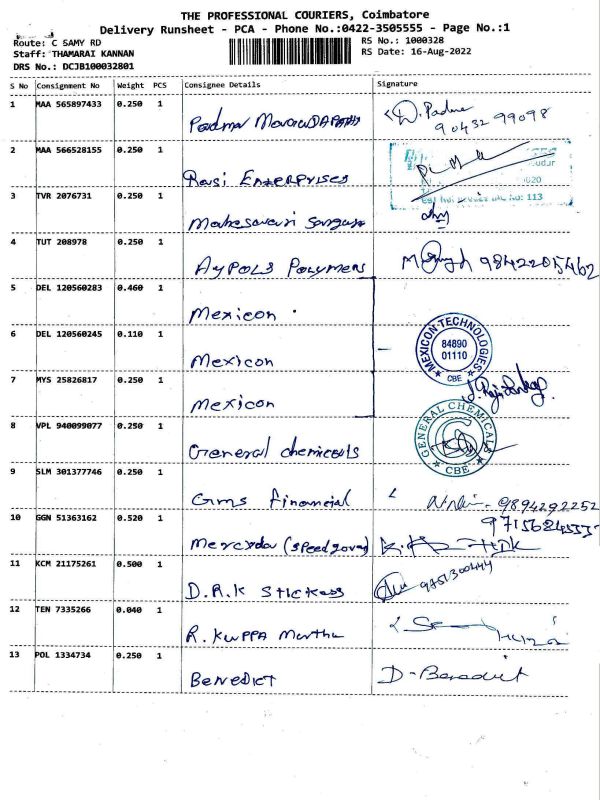 THE PROFESSIONAL COURIERS, Coimbatore
Delivery Runsheet - PCA - Phone No.:0422-3505555 - Page No.:1
Route: C SAMY RD
RS No.: 1000328
Staff: THAMARAI KANNAN
RS Date: 16-Aug-2022
DRS No.: DCJB100032801
S No Consignment No Weight PCS Consignee Details Signature
1 MAA 565897433 0.250 1 Padma D. Padma
90432 99098
2 MAA 566528155 0.250 1 Rasi Enterprises
3 TVR 2076731 0.250 1
113
4 TUT 208978 0.250 1 Aypols Polymers 9842205462
5 DEL 120560283 0.460 1 Mexicon
6 DEL 120560245 0.110 1 Mexicon
MEXICON TECHNOLOGIES
84890
01110
CBE
7 MYS 25826817 0.250 1 Mexicon
8 VPL 940099077 0.250 1 General chemicals
GENERAL CHEMICALS
CBE
9 SLM 301377746 0.250 1 Gms Financial 9894292252
10 GGN 51363162 0.520 1
11 KCM 21175261 0.500 1 D.R.K Stickess 9751300444
12 TEN 7335266 0.040 1 R. Kuppa Muthu
13 POL 1334734 0.250 1 Benedict D-Benedict